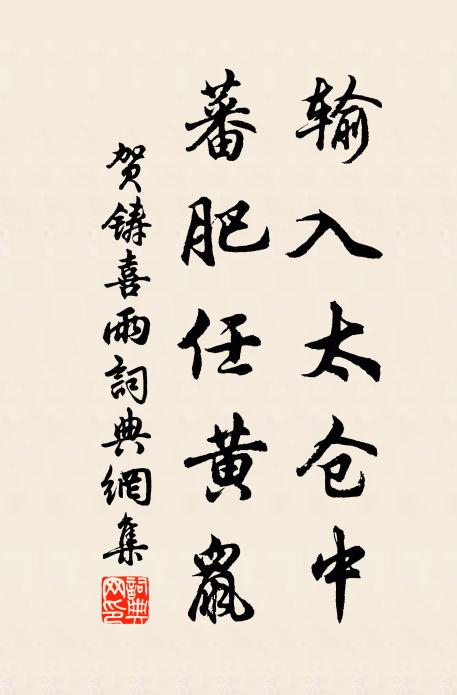 输入太仓中
蕃肥任黄鼠
贺铸喜雨詞典網集
詞典网印